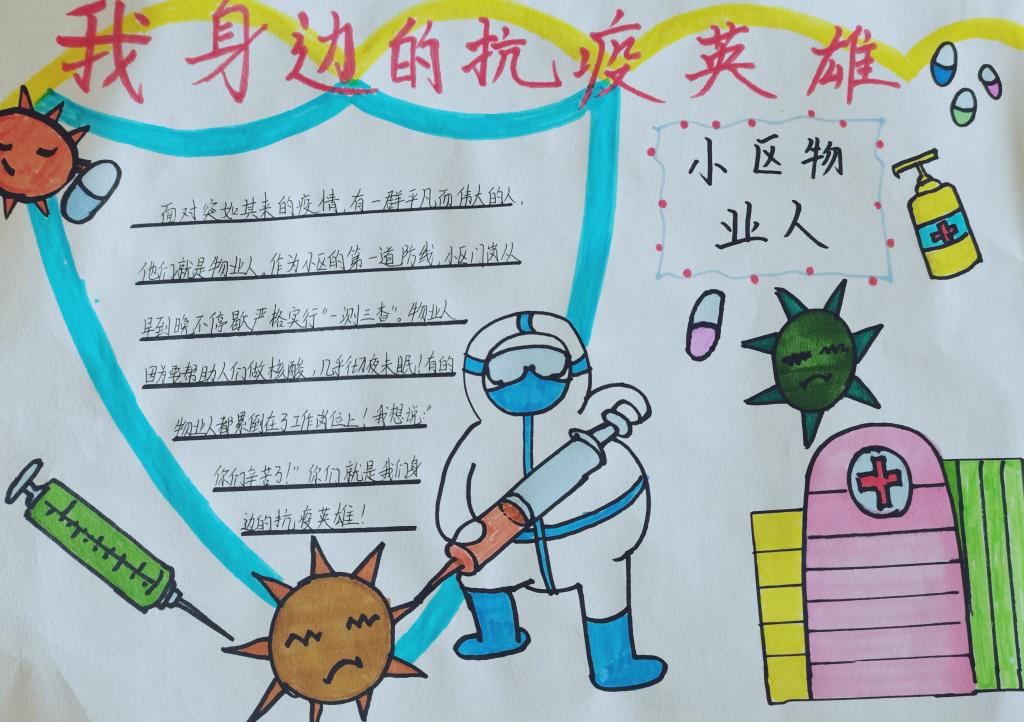 我身边的抗疫英雄
小区物
业人
面对突如其来的疫情，有一群平凡而伟大的人，
他们就是物业人。作为小区的第一道防线，小区门岗从
早到晚不停歇严格实行"一测三查"。物业人
因为要帮助人们做核酸，几乎彻夜未眠！有的
物业人都累倒在了工作岗位上！我想说："
你们辛苦了！"你们就是我们身
边的抗疫英雄！